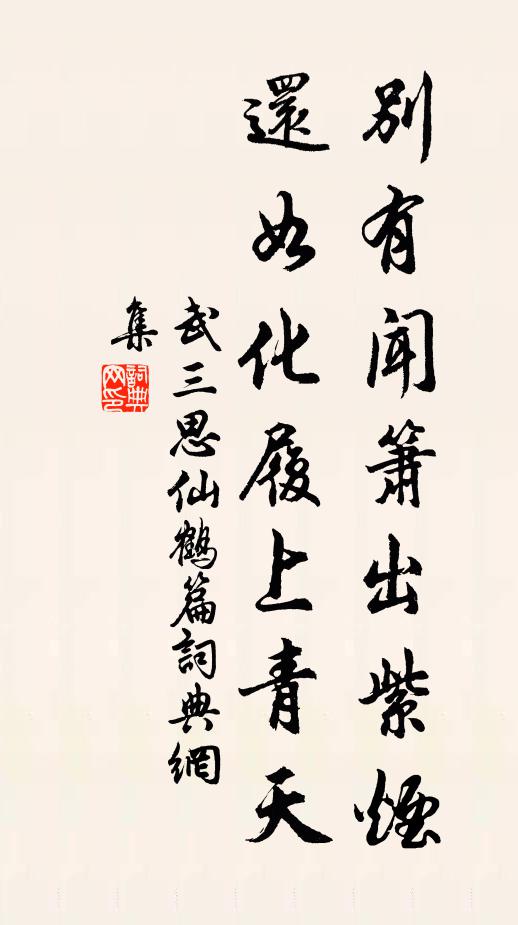 別有聞簫出紫煙
還如化履上青天
武三思仙鶴篇詞典網
集
詞典
网印